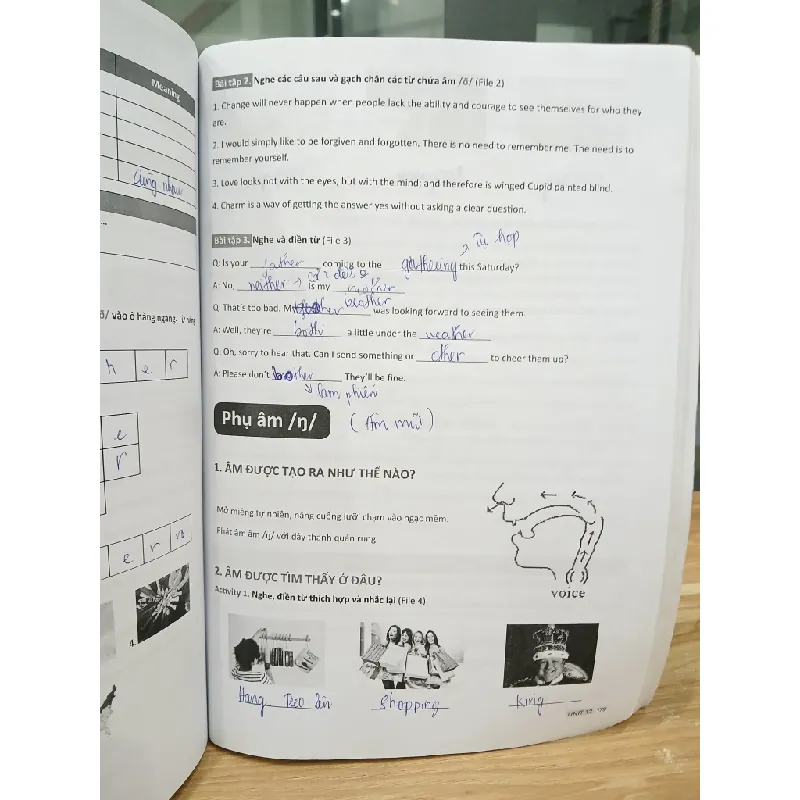 Meaning
Cùng nhau
Bài tập 2. Nghe các câu sau và gạch chân các từ chứa âm /ð/ (File 2)
1. Change will never happen when people lack the ability and courage to see themselves for who they
are.
2. I would simply like to be forgiven and forgotten. There is no need to remember me. The need is to
remember yourself.
3. Love looks not with the eyes, but with the mind; and therefore is winged Cupid painted blind.
4. Charm is a way of getting the answer yes without asking a clear question.
Bài tập 3. Nghe và điền từ (File 3)
Q: Is your father coming to the gathering this Saturday?
A: No, neither is my
brother
Q: That's too bad. My was looking forward to seeing them.
A: Well, they're a little under the weather
Q: Oh, sorry to hear that. Can I send something or other to cheer them up?
A: Please don't They'll be fine.
làm phiền
/ð/ vào ô hàng ngang.
h e r
Phụ âm /ŋ/ (Âm mũi)
e
r
1. ÂM ĐƯỢC TẠO RA NHƯ THẾ NÀO?
Mở miệng tự nhiên, nâng cuống lưỡi chạm vào ngạc mềm.
Phát âm âm /ŋ/ với dây thanh quản rung
e r
2. ÂM ĐƯỢC TÌM THẤY Ở ĐÂU?
voice
Activity 1. Nghe, điền từ thích hợp và nhắc lại (File 4)
4.
Hang Shopping King
UNIT 12